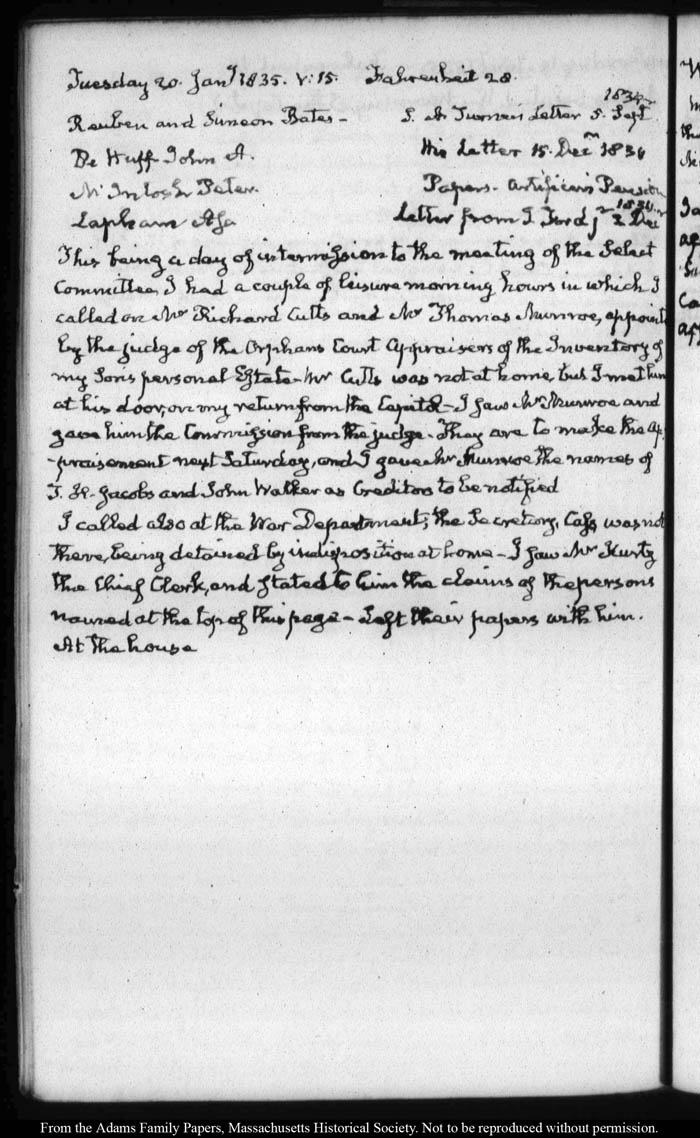 Tuesday 20. Jany 1835. V:15. Fahrenheit 28.
Reuben and Simeon Bates – S. A. Turners Letter 5. Septr 1834
De Huff John A. His Letter 15. Decr 1834
Mc Intosh Peter. Papers. Artificer's Pension
Lapham Asa Letter from 2 Decr 1834.
This being a day of intermission to the meeting of the Select
Committee, I had a couple of leisure morning hours in which I
called on Mr Richard Cutts and Mr Thomas Munroe, appoint
by the judge of the Orphans Court Appraisers of the Inventory of
my Son's personal Estate – Mr Cutts was not at home, but I met him
at his door, on my return from the Capitol – I saw Mr Munroe and
gave him the Commission from the judge. They are to make the ap
-praisement next Saturday, and I gave Mr Munroe the names of
Jacobs and John Walker as Creditors to be notified
I called also at the War Department; the Secretary, Cass was not
there, being detained by indisposition at home – I saw Mr Kurtz
the Chief Clerk, and stated to him the claims of the persons
named at the top of this page – Left their papers with him.
At the house
From the Adams Family Papers, Massachusetts Historical Society. Not to be reproduced without permission.